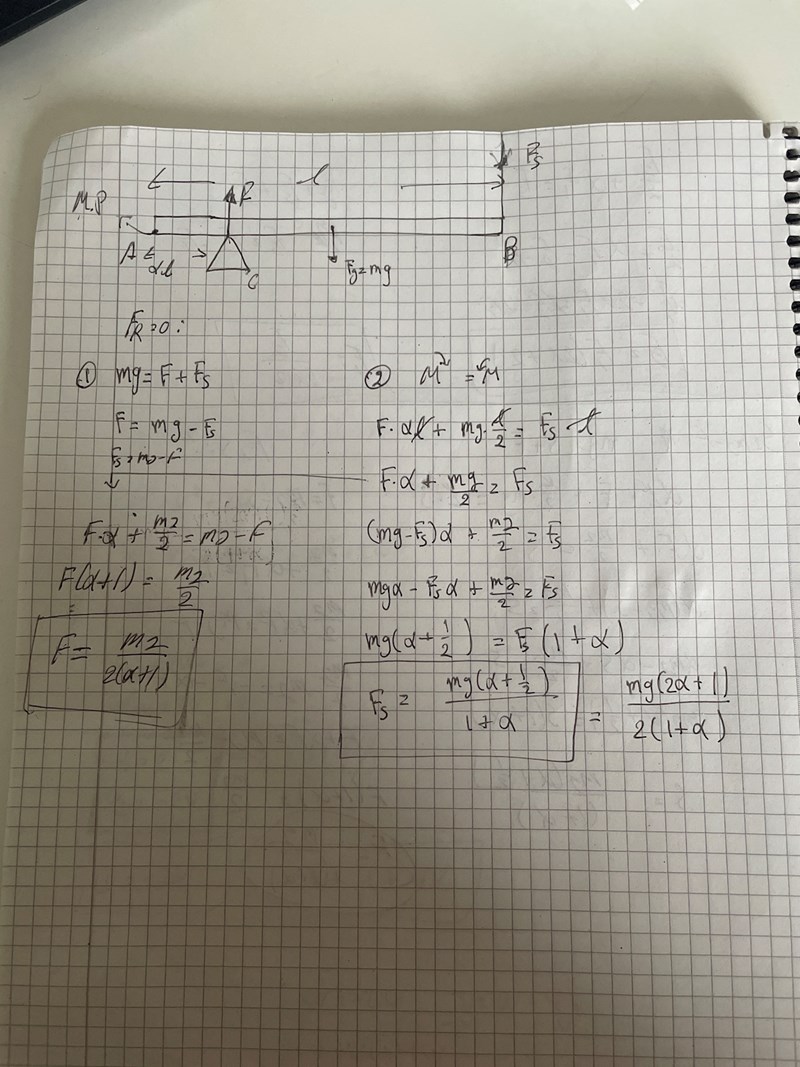 l
F_S
M.P
F
A
αl
C
F_g=mg
B
F_R=0:
① mg = F + F_S
F = mg - F_S
F_S = mg - F
F·α + mg/2 = mg - F
F(α+1) = mg/2
F = mg/2(α+1)
② M↷ = ↶M
F·αl + mg·l/2 = F_S·l
F·α + mg/2 = F_S
(mg-F_S)α + mg/2 = F_S
mgα - F_Sα + mg/2 = F_S
mg(α+1/2) = F_S(1+α)
F_S = mg(α+1/2)/1+α = mg(2α+1)/2(1+α)